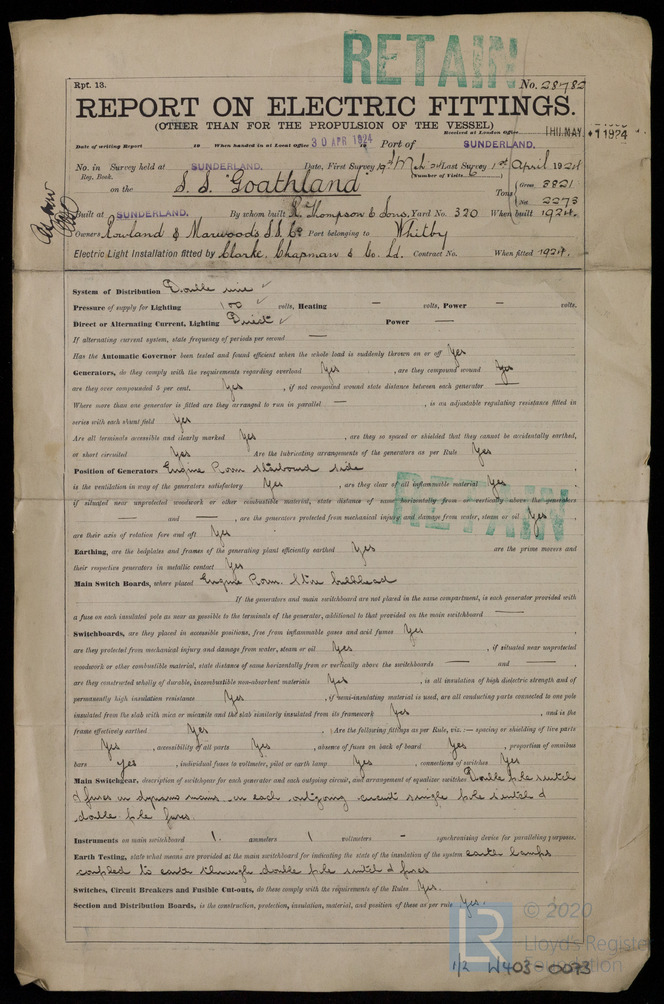 RETAIN
Rpt. 13.
No. 28782
REPORT ON ELECTRIC FITTINGS.
(OTHER THAN FOR THE PROPULSION OF THE VESSEL)
Received at London Office THU. MAY. 1 1924
Date of writing Report 19 When handed in at Local Office 30 APR 1924 19 Port of SUNDERLAND.
No. in Survey held at SUNDERLAND. Date, First Survey Last Survey 1st April 1924
Reg. Book. (Number of Visits 6)
on the S.S. "Goathland" Tons { Gross 3821
Net 2273
Built at SUNDERLAND. By whom built R. Thompson & Sons, Yard No. 320 When built 1924.
Owners Rowland & Marwoods S.S. Co. Port belonging to Whitby
Electric Light Installation fitted by Clarke, Chapman & Co. Ld. Contract No. When fitted 1924.
System of Distribution Double wire ✓
Pressure of supply for Lighting 100 ✓ volts, Heating — volts, Power — volts.
Direct or Alternating Current, Lighting Direct ✓ Power —
If alternating current system, state frequency of periods per second —
Has the Automatic Governor been tested and found efficient when the whole load is suddenly thrown on or off Yes
Generators, do they comply with the requirements regarding overload Yes , are they compound wound Yes
are they over compounded 5 per cent. Yes , if not compound wound state distance between each generator —
Where more than one generator is fitted are they arranged to run in parallel — , is an adjustable regulating resistance fitted in
series with each shunt field Yes
Are all terminals accessible and clearly marked Yes , are they so spaced or shielded that they cannot be accidentally earthed,
or short circuited Yes Are the lubricating arrangements of the generators as per Rule Yes
Position of Generators Engine Room starboard side
is the ventilation in way of the generators satisfactory Yes , are they clear of all inflammable material Yes
if situated near unprotected woodwork or other combustible material, state distance of same horizontally from or vertically above the generators
— and — , are the generators protected from mechanical injury and damage from water, steam or oil Yes
are their axis of rotation fore and aft Yes
RETAIN
Earthing, are the bedplates and frames of the generating plant efficiently earthed Yes are the prime movers and
their respective generators in metallic contact Yes
Main Switch Boards, where placed Engine Room.
If the generators and main switchboard are not placed in the same compartment, is each generator provided with
a fuse on each insulated pole as near as possible to the terminals of the generator, additional to that provided on the main switchboard —
Switchboards, are they placed in accessible positions, free from inflammable gases and acid fumes Yes
are they protected from mechanical injury and damage from water, steam or oil Yes , if situated near unprotected
woodwork or other combustible material, state distance of same horizontally from or vertically above the switchboards — and —
are they constructed wholly of durable, incombustible non-absorbent materials Yes , is all insulation of high dielectric strength and of
permanently high insulation resistance Yes , if semi-insulating material is used, are all conducting parts connected to one pole
insulated from the slab with mica or micanite and the slab similarly insulated from its framework Yes , and is the
frame effectively earthed Yes . Are the following fittings as per Rule, viz.:— spacing or shielding of live parts
Yes , accessibility of all parts Yes , absence of fuses on back of board Yes , proportion of omnibus
bars Yes , individual fuses to voltmeter, pilot or earth lamp Yes , connections of switches Yes
Main Switchgear, description of switchgear for each generator and each outgoing circuit, and arrangement of equalizer switches Double pole switch
& fuses on dynamo mains on each outgoing circuit single pole switch &
double pole fuses.
Instruments on main switchboard 1. ammeters 1 voltmeters - synchronizing device for paralleling purposes.
Earth Testing, state what means are provided at the main switchboard for indicating the state of the insulation of the system earth lamps
coupled to earth through double pole switch & fuses
Switches, Circuit Breakers and Fusible Cut-outs, do these comply with the requirements of the Rules Yes.
Section and Distribution Boards, is the construction, protection, insulation, material, and position of these as per rule Yes.
LR
© 2020
Lloyd's Register
Foundation
1/2 W403-0073